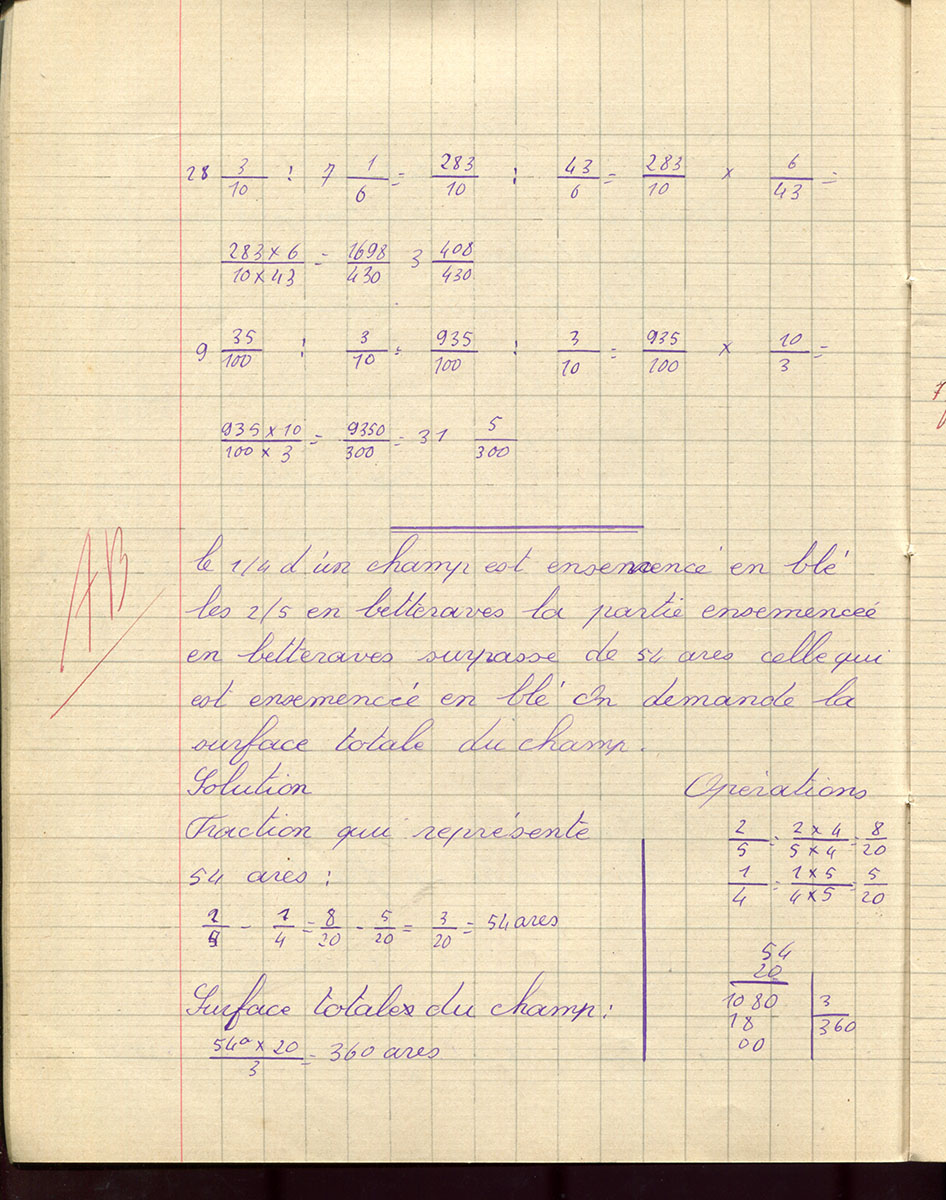 28 3/10 : 7 1/6 = 283/10 : 43/6 = 283/10 × 6/43 =
283 × 6/10 × 43 = 1698/430 3 408/430
9 35/100 : 3/10 = 935/100 : 3/10 = 935/100 × 10/3 =
935 × 10/100 × 3 = 9350/300 = 31 5/300
AB
le 1/4 d'un champ est ensemencé en blé
les 2/5 en betteraves la partie ensemenceé
en betteraves surpasse de 54 ares celle qui
est ensemenceé en blé On demande la
surface totale du champ.
Solution
Fraction qui représente
54 ares :
2/5 - 1/4 = 8/20 - 5/20 = 3/20 = 54 ares
Surface totale du champ :
54a × 20/3 = 360 ares
Opérations
2/5 = 2 × 4/5 × 4 = 8/20
1/4 = 1 × 5/4 × 5 = 5/20
54
20
1080 3
18 360
00